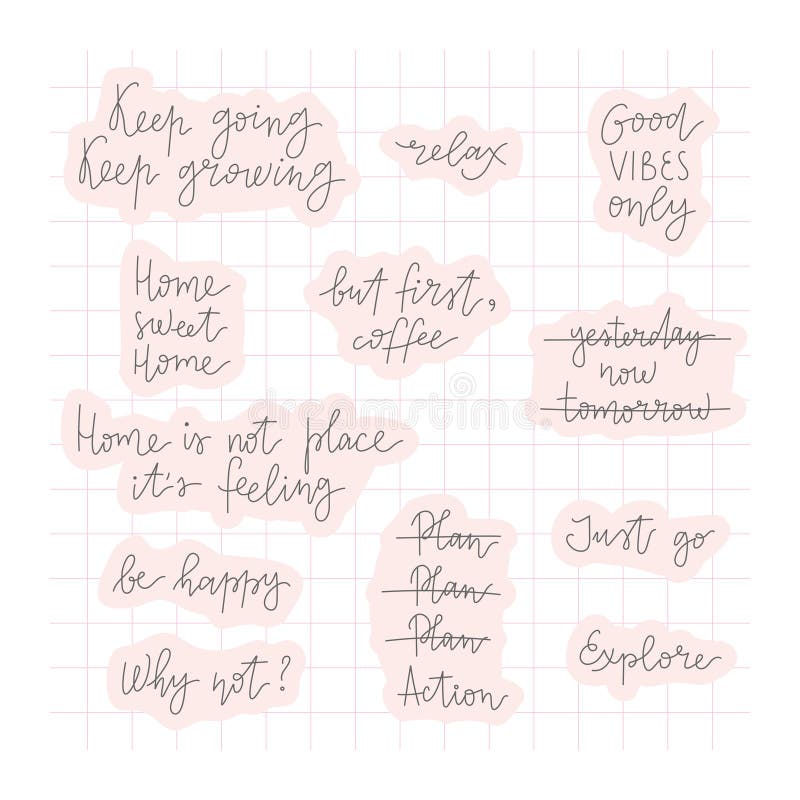 Keep going
Keep growing
relax
Good
VIBES
only
Home
sweet
Home
but first,
coffee
yesterday
now
tomorrow
Home is not place
it's feeling
Plan
Plan
Plan
Action
Just go
be happy
Why not?
Explore
dreamstime